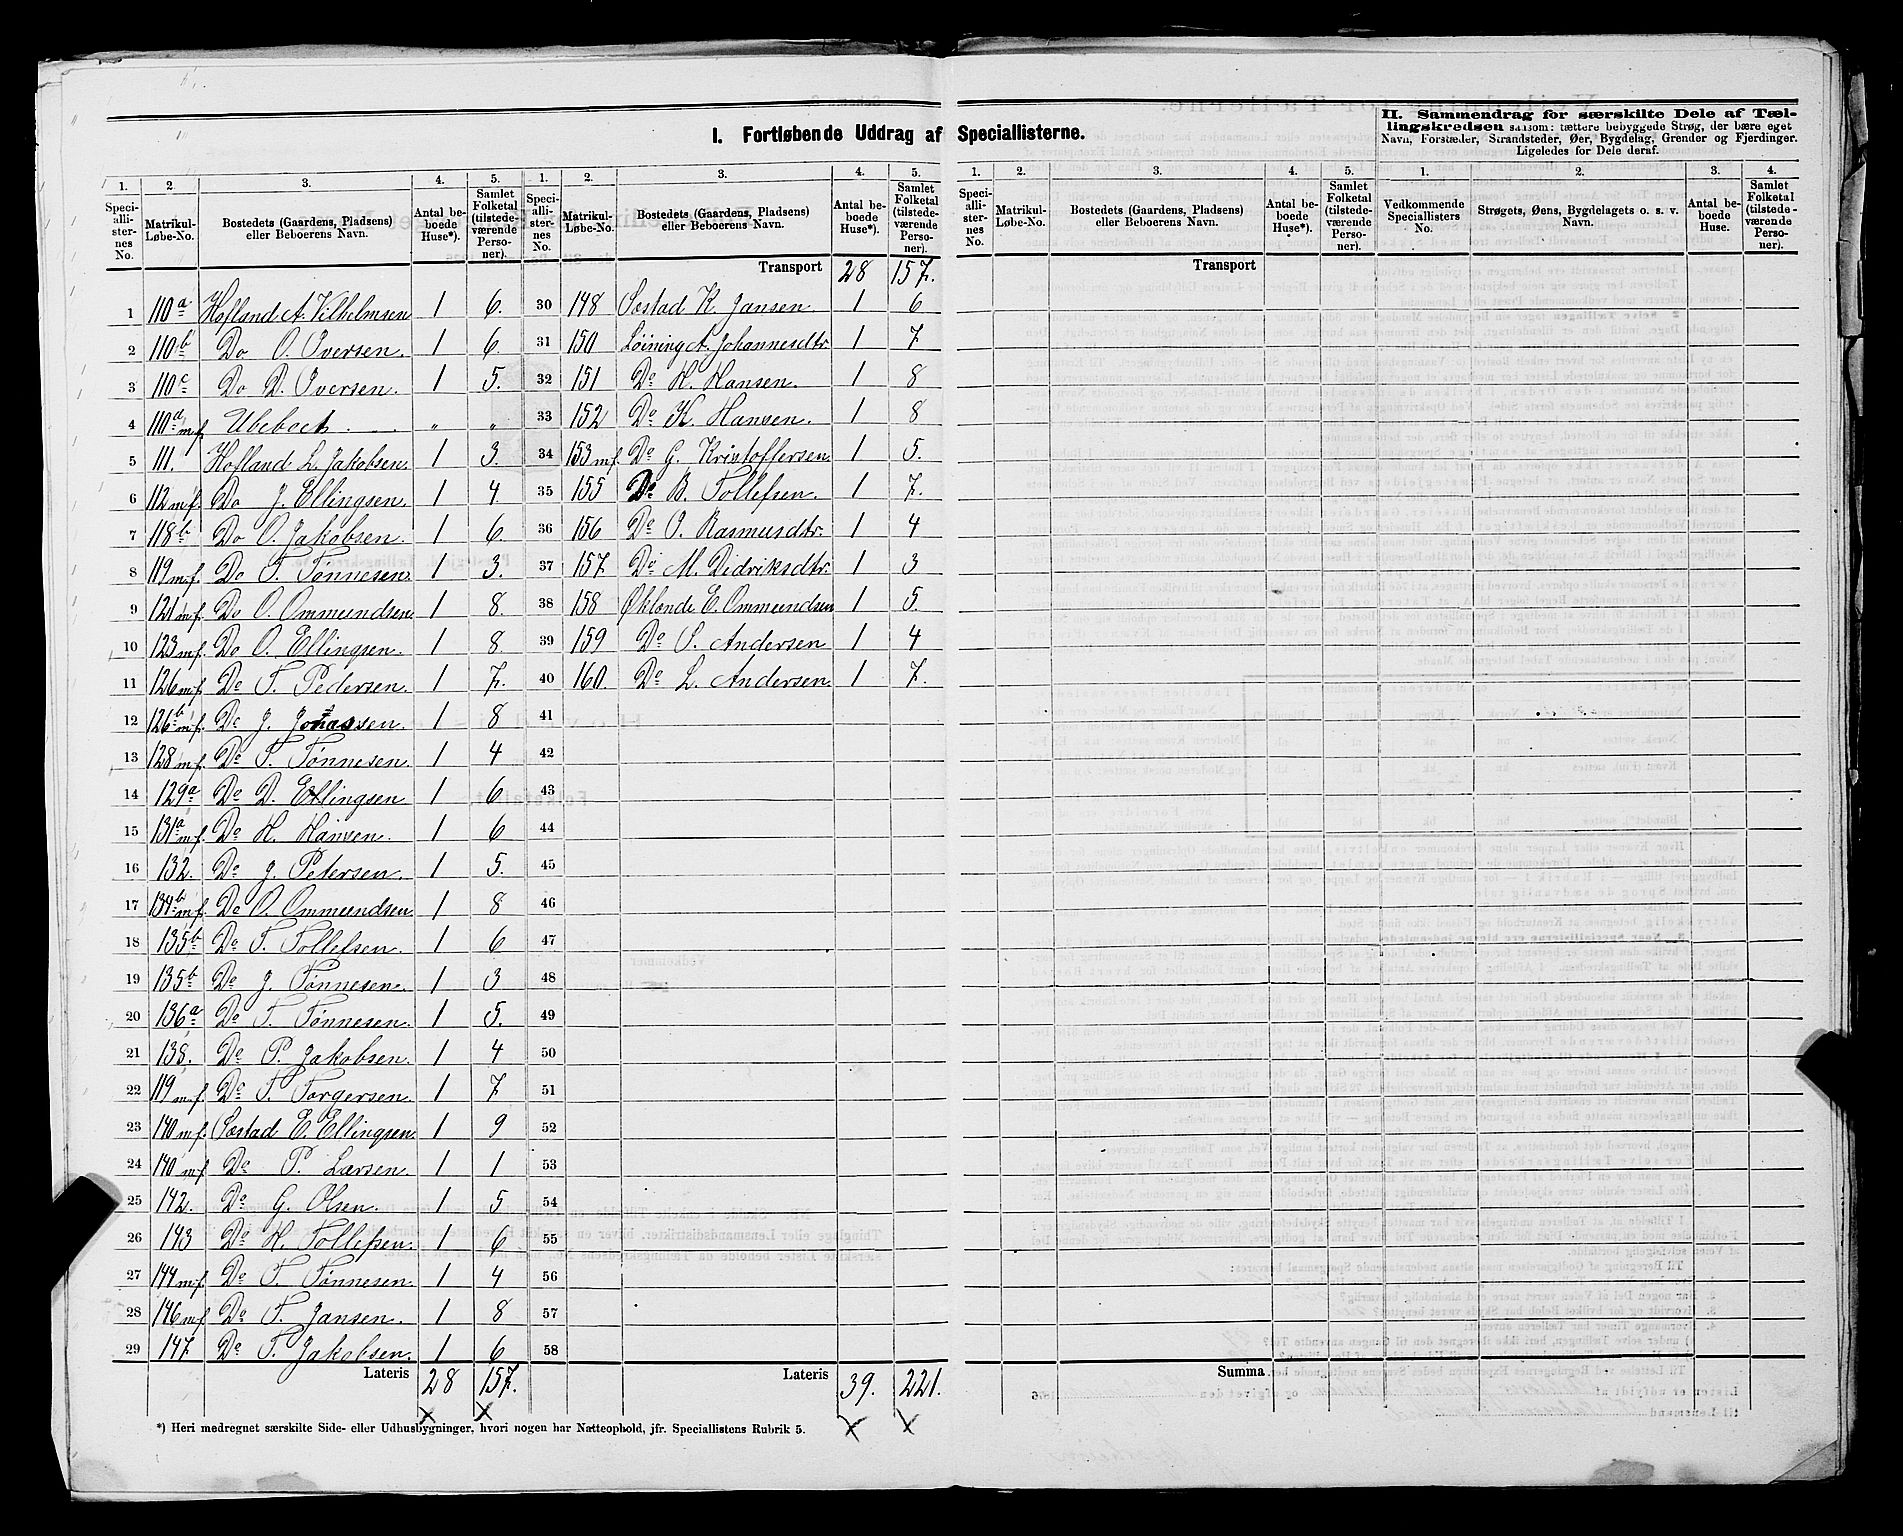 I. Fortløbende Uddrag af Speciallisterne.
II. Sammendrag for særskilte Dele af Tællingskredsen saasom: tættere bebyggede Strøg, der bære eget
Navn, Forstæder, Strandsteder, Øer, Bygdelag, Grender og Fjerdinger.
Ligeledes for Dele deraf.
1. 2 3. 4. 5. 1. 2. 3. 4. 5. 1. 2. 3. 4. 5. 1. 2. 3. 4.
Speciallisternes No. Matrikul-Løbe-No. Bostedets (Gaardens, Pladsens) eller Beboerens Navn. Antal beboede Huse*). Samlet Folketal (tilstedeværende Personer).
Speciallisternes No. Matrikul-Løbe-No. Bostedets (Gaardens, Pladsens) eller Beboerens Navn. Antal beboede Huse*). Samlet Folketal (tilstedeværende Personer).
Speciallisternes No. Matrikul-Løbe-No. Bostedets (Gaardens, Pladsens) eller Beboerens Navn. Antal beboede Huse*). Samlet Folketal (tilstedeværende Personer).
Vedkommende Speciallisters No. Strøgets, Øens, Bygdelagets o. s. v. Navn. Antal beboede Huse. Samlet Folketal (tilstedeværende Personer).
Transport 28 157. Transport
1 110a Hofland A. Vilhelmsen 1 6. 30 148 Sæstad K. Jansen 1 6
2 110b Do O. Iversen. 1 6. 31 150 Løining A. Johannesdtr 1 7
3 110c Do D. Iversen. 1 5. 32 151 Do H. Hansen. 1 8
4 110d m.f. Ubeboet " " 33 152 Do K. Hansen. 1 8
5 111. Hofland L. Jakobsen. 1 3. 34 153 m.f. Do G. Kristoffersen 1 5.
6 112 m.f. Do J. Ellingsen. 1 4. 35 155 Do B. Tollefsen. 1 7.
7 118b Do O. Jakobsen. 1 6. 36 156 Do O. Rasmusdtr. 1 4
8 119 m.f. Do T. Tønnesen. 1 3. 37 157 Do M. Didriksdtr. 1 3
9 121 m.f. Do O. Ommundsen 1 8. 38 158 Øklande E. Ommundsen 1 5.
10 123 m.f. Do O. Ellingsen. 1 8. 39 159 Do S. Andersen 1 4
11 126 m.f. Do T. Pedersen. 1 7. 40 160. Do L. Andersen 1 7.
12 126b m.f. Do J. Jonassen. 1 8 41
13 128 m.f. Do T. Tønnesen. 1 4 42
14 129a Do D. Ellingsen 1 6 43
15 131a m.f. Do H. Hansen. 1 6 44
16 132. Do J. Petersen. 1 5. 45
17 134b m.f. Do O. Ommundsen. 1 8 46
18 135b Do T. Tollefsen. 1 6 47
19 135b Do J. Tønnesen. 1 3 48
20 136a Do T. Tønnesen. 1 5. 49
21 138. Do P. Jakobsen. 1 4 50
22 119 m.f. Do T. Torgersen. 1 7 51
23 140 m.f. Sæstad E. Ellingsen. 1 9 52
24 140 m.f. Do P. Larsen. 1 1 53
25 142. Do G. Olsen. 1 5 54
26 143 Do H. Tollefsen. 1 6 55
27 144 m.f. Do T. Tønnesen. 1 4 56
28 146 m.f. Do T. Jansen. 1 8 57
29 147 Do T. Jakobsen. 1 6 58
Lateris 28 157. Lateris 39. 221. Summa
*) Heri medregnet særskilte Side- eller Udhusbygninger, hvori nogen har Natteophold, jfr. Speciallistens Rubrik 5.